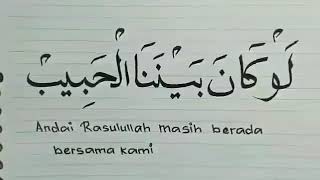 لَوْ كَانَ بَيْنَنَا الْحَبِيبْ
Andai Rasulullah masih berada
bersama kami